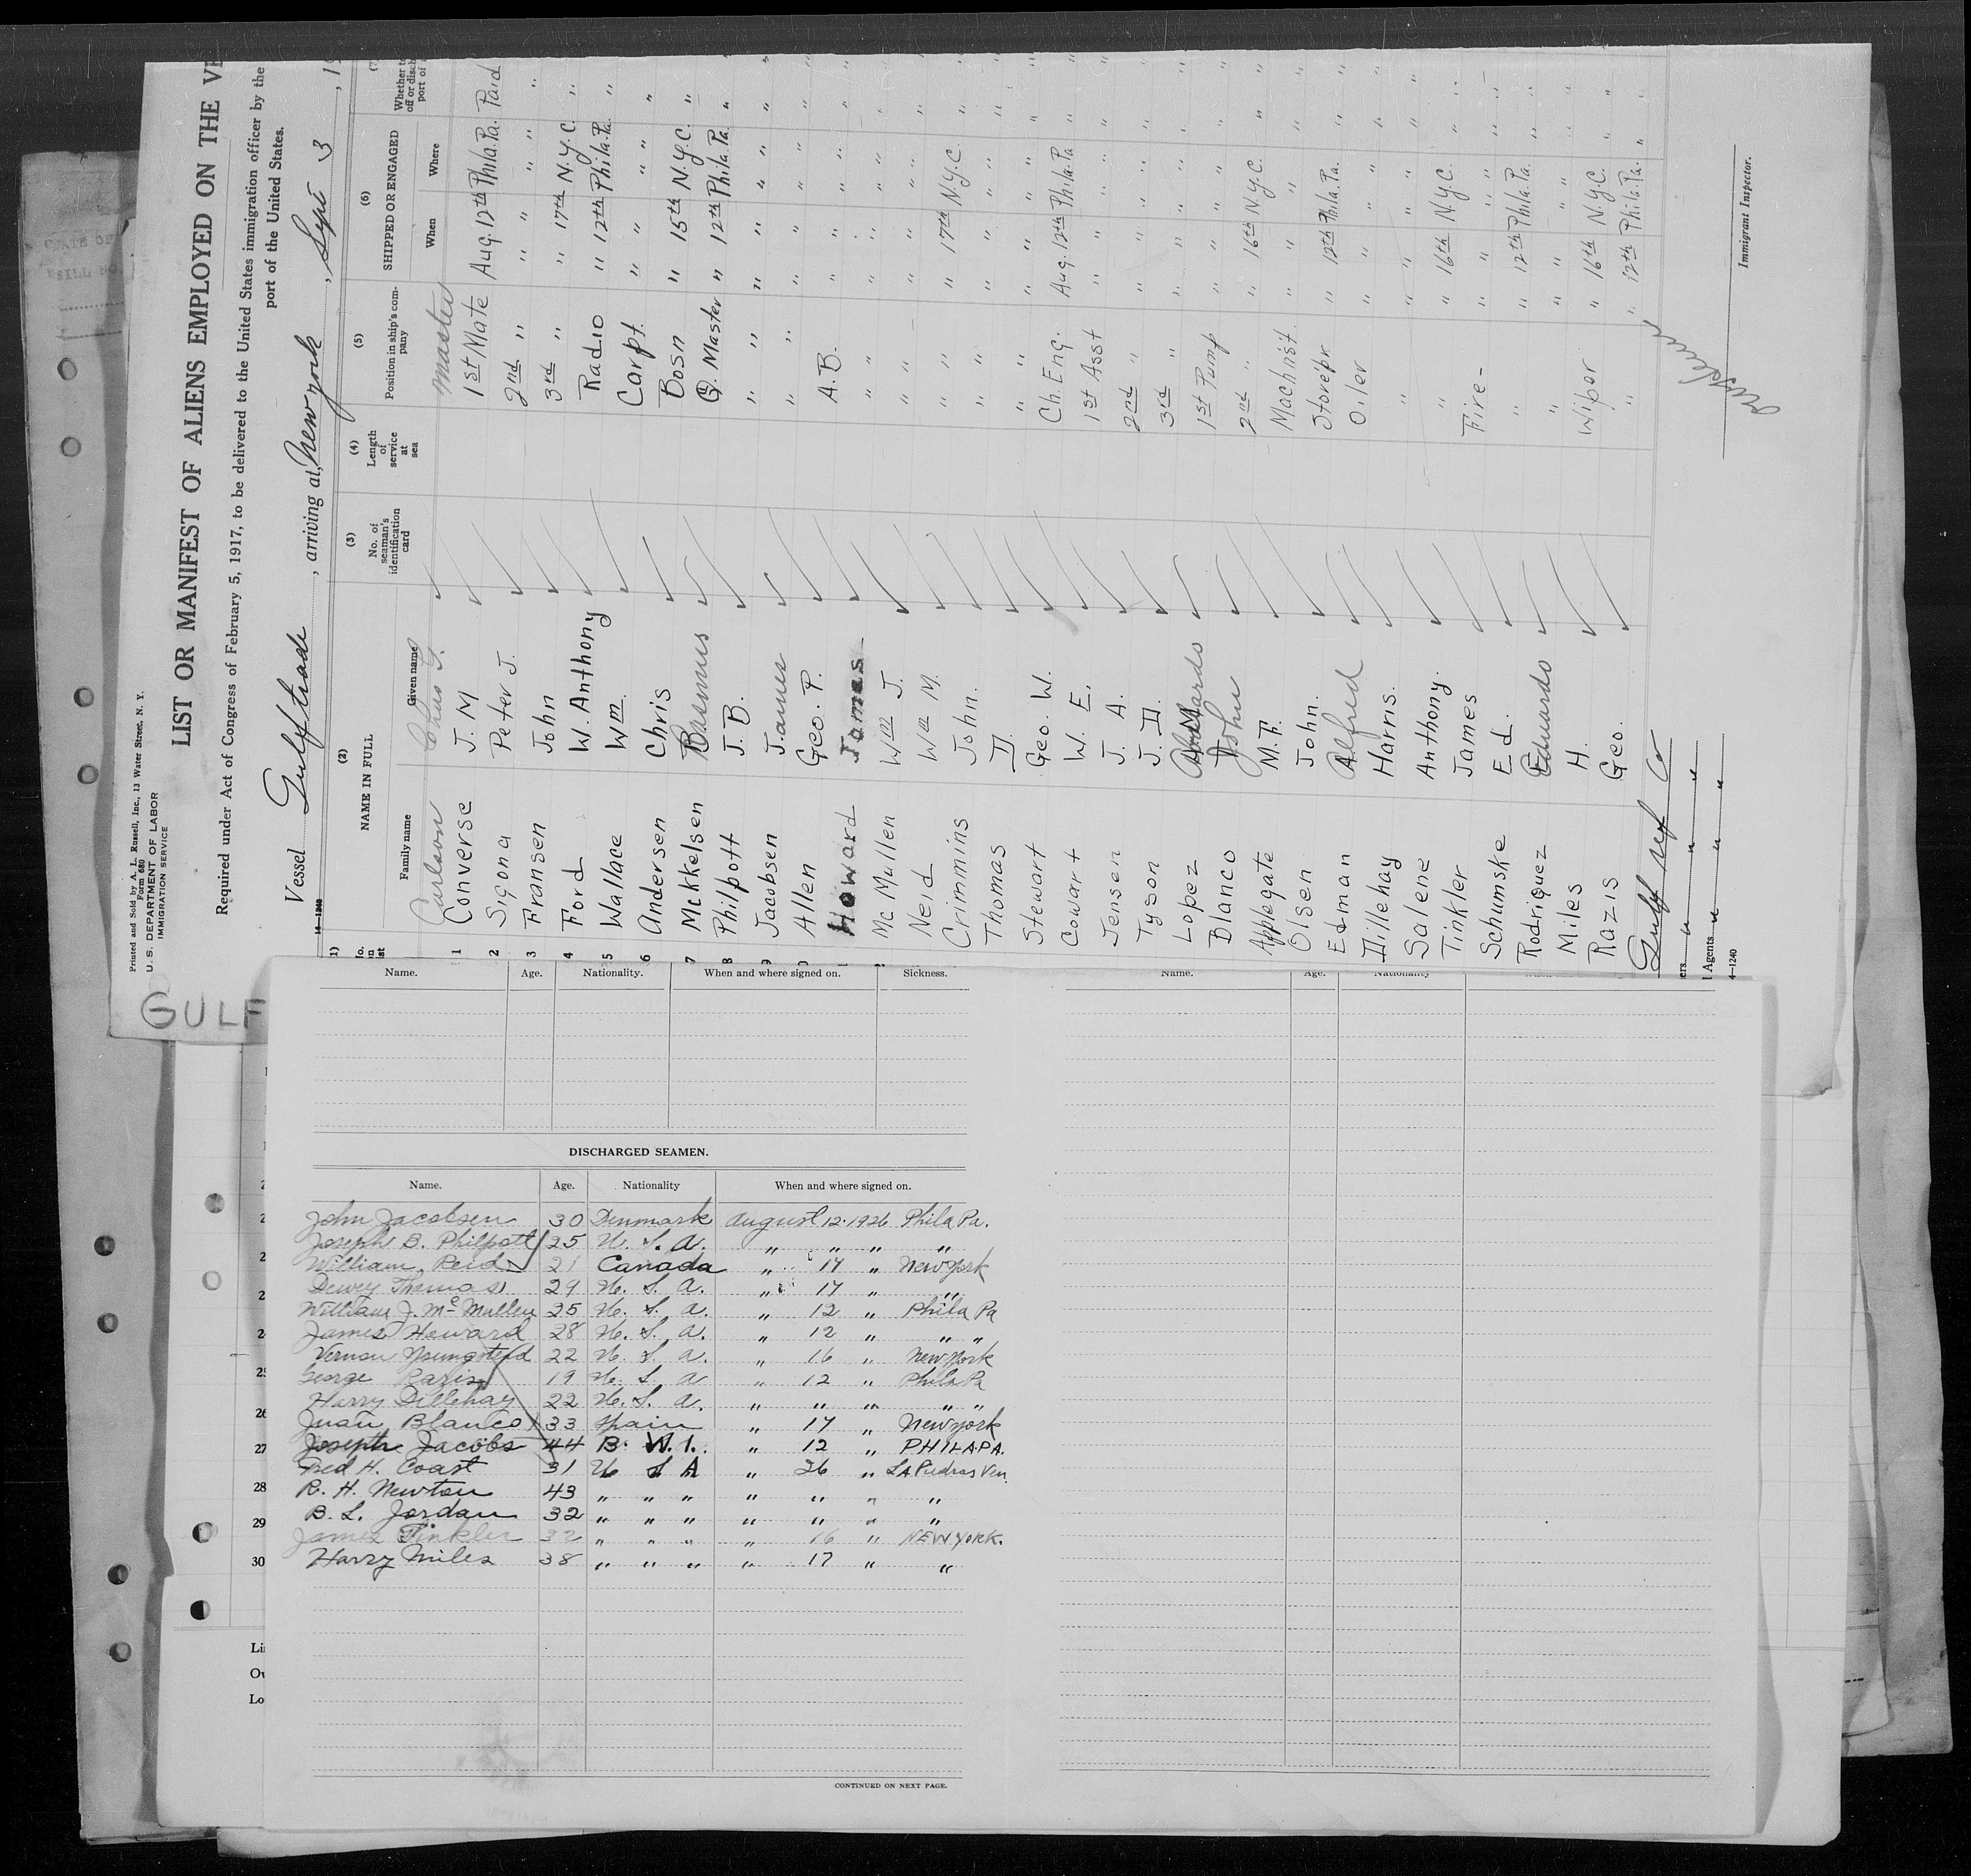 Printed and Sold by A. L. Russell, Inc., 13 Water Street, N. Y.
Form 680
U. S. DEPARTMENT OF LABOR
IMMIGRATION SERVICE
LIST OR MANIFEST OF ALIENS EMPLOYED ON THE VE
Required under Act of Congress of February 5, 1917, to be delivered to the United States immigration officer by the
port of the United States.
Vessel Gulftrade, arriving at New York, Sept 3, 19
14-1240
(2) NAME IN FULL
Family name Given name
(3) No. of seaman's identification card
(4) Length of service at sea
(5) Position in ship's company
(6) SHIPPED OR ENGAGED
When Where
Carlson Master
1 Converse J. M 1st Mate Aug. 12th Phila. Pa. Paid
2 Sigona Peter J. 2nd " " " " "
3 Fransen John 3rd " " 17th N.Y.C. "
4 Ford W. Anthony Radio " 12th Phila. Pa. "
5 Wallace Wm. Carpt. " " " " "
6 Andersen Chris Bosn " 15th N.Y.C. "
7 Mikkelsen Rasmus Q. Master " 12th Phila. Pa. "
8 Philpott J. B. " " " " " "
9 Jacobsen James " " " " " "
Allen Geo. P. A. B. " " " " "
Howard James " " " " " "
Mc Mullen Wm J. " " " " " "
Neid Wm M. " " 17th N.Y.C. "
Crimmins John. " " " " " "
Thomas D. " " " " " "
Stewart Geo. W. Ch. Eng. Aug. 12th Phila. Pa "
Cowart W. E. 1st Asst " " " " "
Jensen J. A. 2nd " " " " " "
Tyson J. D. 3rd " " " " " "
Lopez 1st Pump " " " " "
Blanco John 2nd " " 16th N.Y.C. "
Applegate M. F. Machnist " " " "
Olsen John. Storekpr " 12th Phila. Pa. "
Edman Alfred Oiler " " " "
Dillehay Harris. " " " " "
Salene Anthony. " " 16th N.Y.C. "
Tinkler James Fire- " " " "
Schumske Ed. " " 12th Phila. Pa. "
Rodriquez Eduardo " " " " "
Miles H. Wiper " 16th N.Y.C. "
Razis Geo. " " 12th Phila. Pa. "
Gulf Ref Co
Agents " " "
4-1240
Immigrant Inspector.
GULF
Name. Age. Nationality. When and where signed on. Sickness.
Name. Age. Nationality
DISCHARGED SEAMEN.
Name. Age. Nationality When and where signed on.
John Jacobsen 30 Denmark August 12-1926 Phila Pa.
Joseph B. Philpott 25 U. S. A. " " " "
William Reid 21 Canada " 17 " New York
Dewey Thomas 29 U. S. A. " 17 " "
William J. Mc Mullen 25 U. S. A. " 12 " Phila Pa
James Howard 28 U. S. A. " 12 " " "
Vernon Youngsterd 22 U. S. A. " 16 " New York
George Razis 19 U. S. A " 12 " Phila Pa
Harry Dillehay 22 U. S. A. " " " " "
Juan Blanco 33 Spain " 17 " New York
Joseph Jacobs 44 B. W. I. " 12 " PHILA.PA.
Fred H. Coast 31 U S A " 26 " LA Piedras Ven.
R. H. Newton 43 " " " " " " "
B. L. Jordan 32 " " " " " " "
James Tinkler 32 " " " " 16 " NEW YORK.
Harry Miles 38 " " " " 17 " "
25
26
27
28
29
30
CONTINUED ON NEXT PAGE.